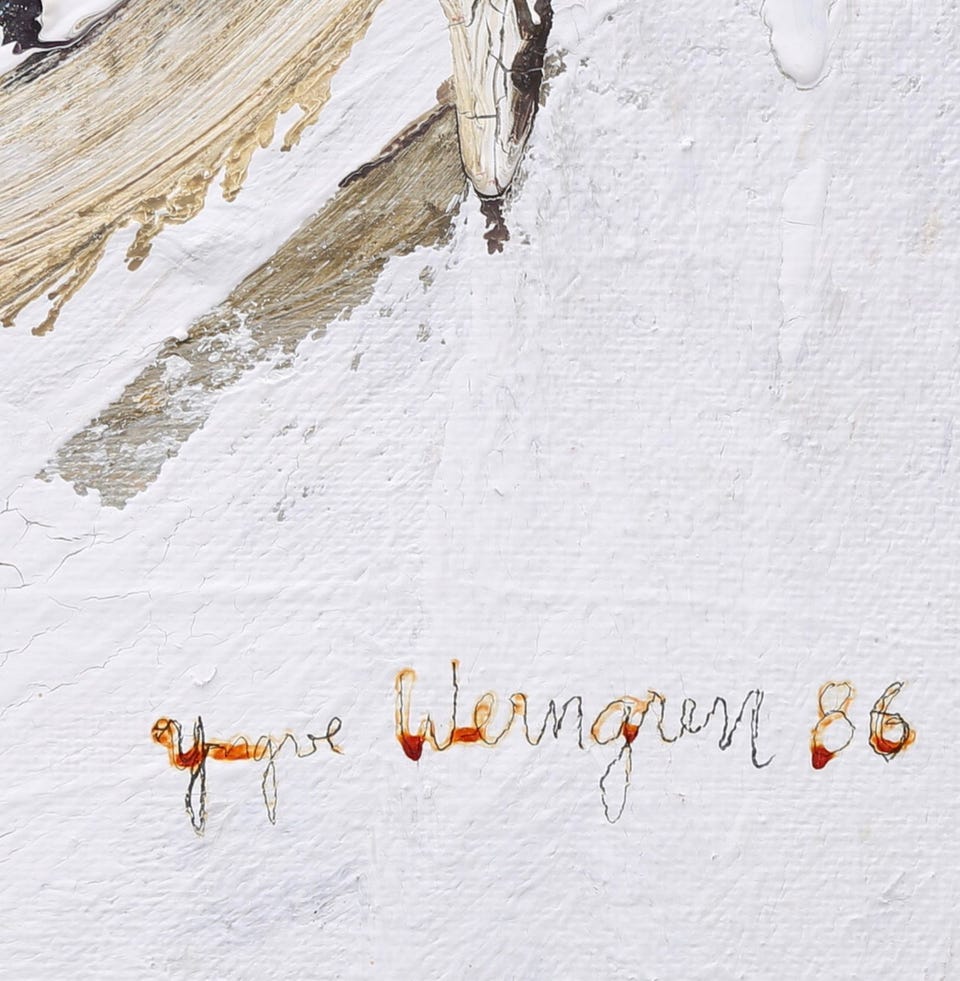 yngve Werngren 86